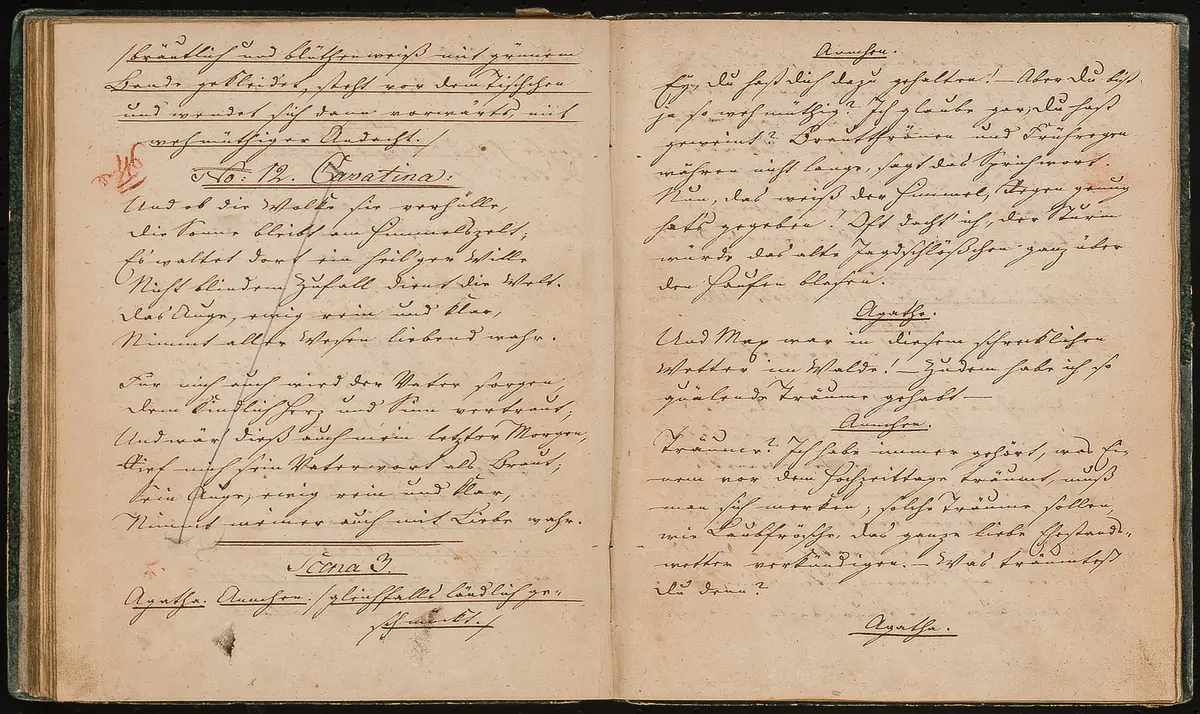 /bräutlich und blüthenweiß mit grünem
Bande gekleidet, steht vor dem Tischchen
und wendet sich dann vorwärts, mit
wehmüthiger Andacht./
No: 12. Cavatina:
Und ob die Wolke sie verhülle,
Die Sonne bleibt am Himmelszelt;
Es waltet dort ein heil'ger Wille
Nicht blindem Zufall dient die Welt.
Das Auge, ewig rein und klar,
Nimmt aller Wesen liebend wahr.
Für mich auch wird der Vater sorgen,
Dem kindlich Herz und Sinn vertraut;
Und wär dieß auch mein letzter Morgen,
Rief mich sein Vaterwort als Braut;
Sein Auge, ewig rein und klar,
Nimmt meiner auch mit Liebe wahr.
Scena 3.
Agatha. Annchen: /gleichfalls ländlich ge-
schmückt./
Annchen.
Ey, Du hast Dich dazu gehalten! – Aber Du bist
ja so wehmüthig? Ich glaube gar, Du hast
geweint? Brautthränen und Frühregen
währen nicht lange, sagt das Sprichwort.
Nun, das weiß der Himmel, Regen genug
hat's gegeben! Oft dacht' ich, der Sturm
würde das alte Jagdschlößchen ganz über
den Haufen blasen.
Agatha.
Und Max war in diesem schrecklichen
Wetter im Walde! – Zudem habe ich so
quälende Träume gehabt –
Annchen.
Träume? Ich habe immer gehört, was Ei-
nem vor dem Hochzeittage träumt, muß
man sich merken; solche Träume sollen,
wie Laubfrösche, das ganze liebe Ehestands-
wetter verkündigen. – Was träumtest
Du denn?
Agatha.